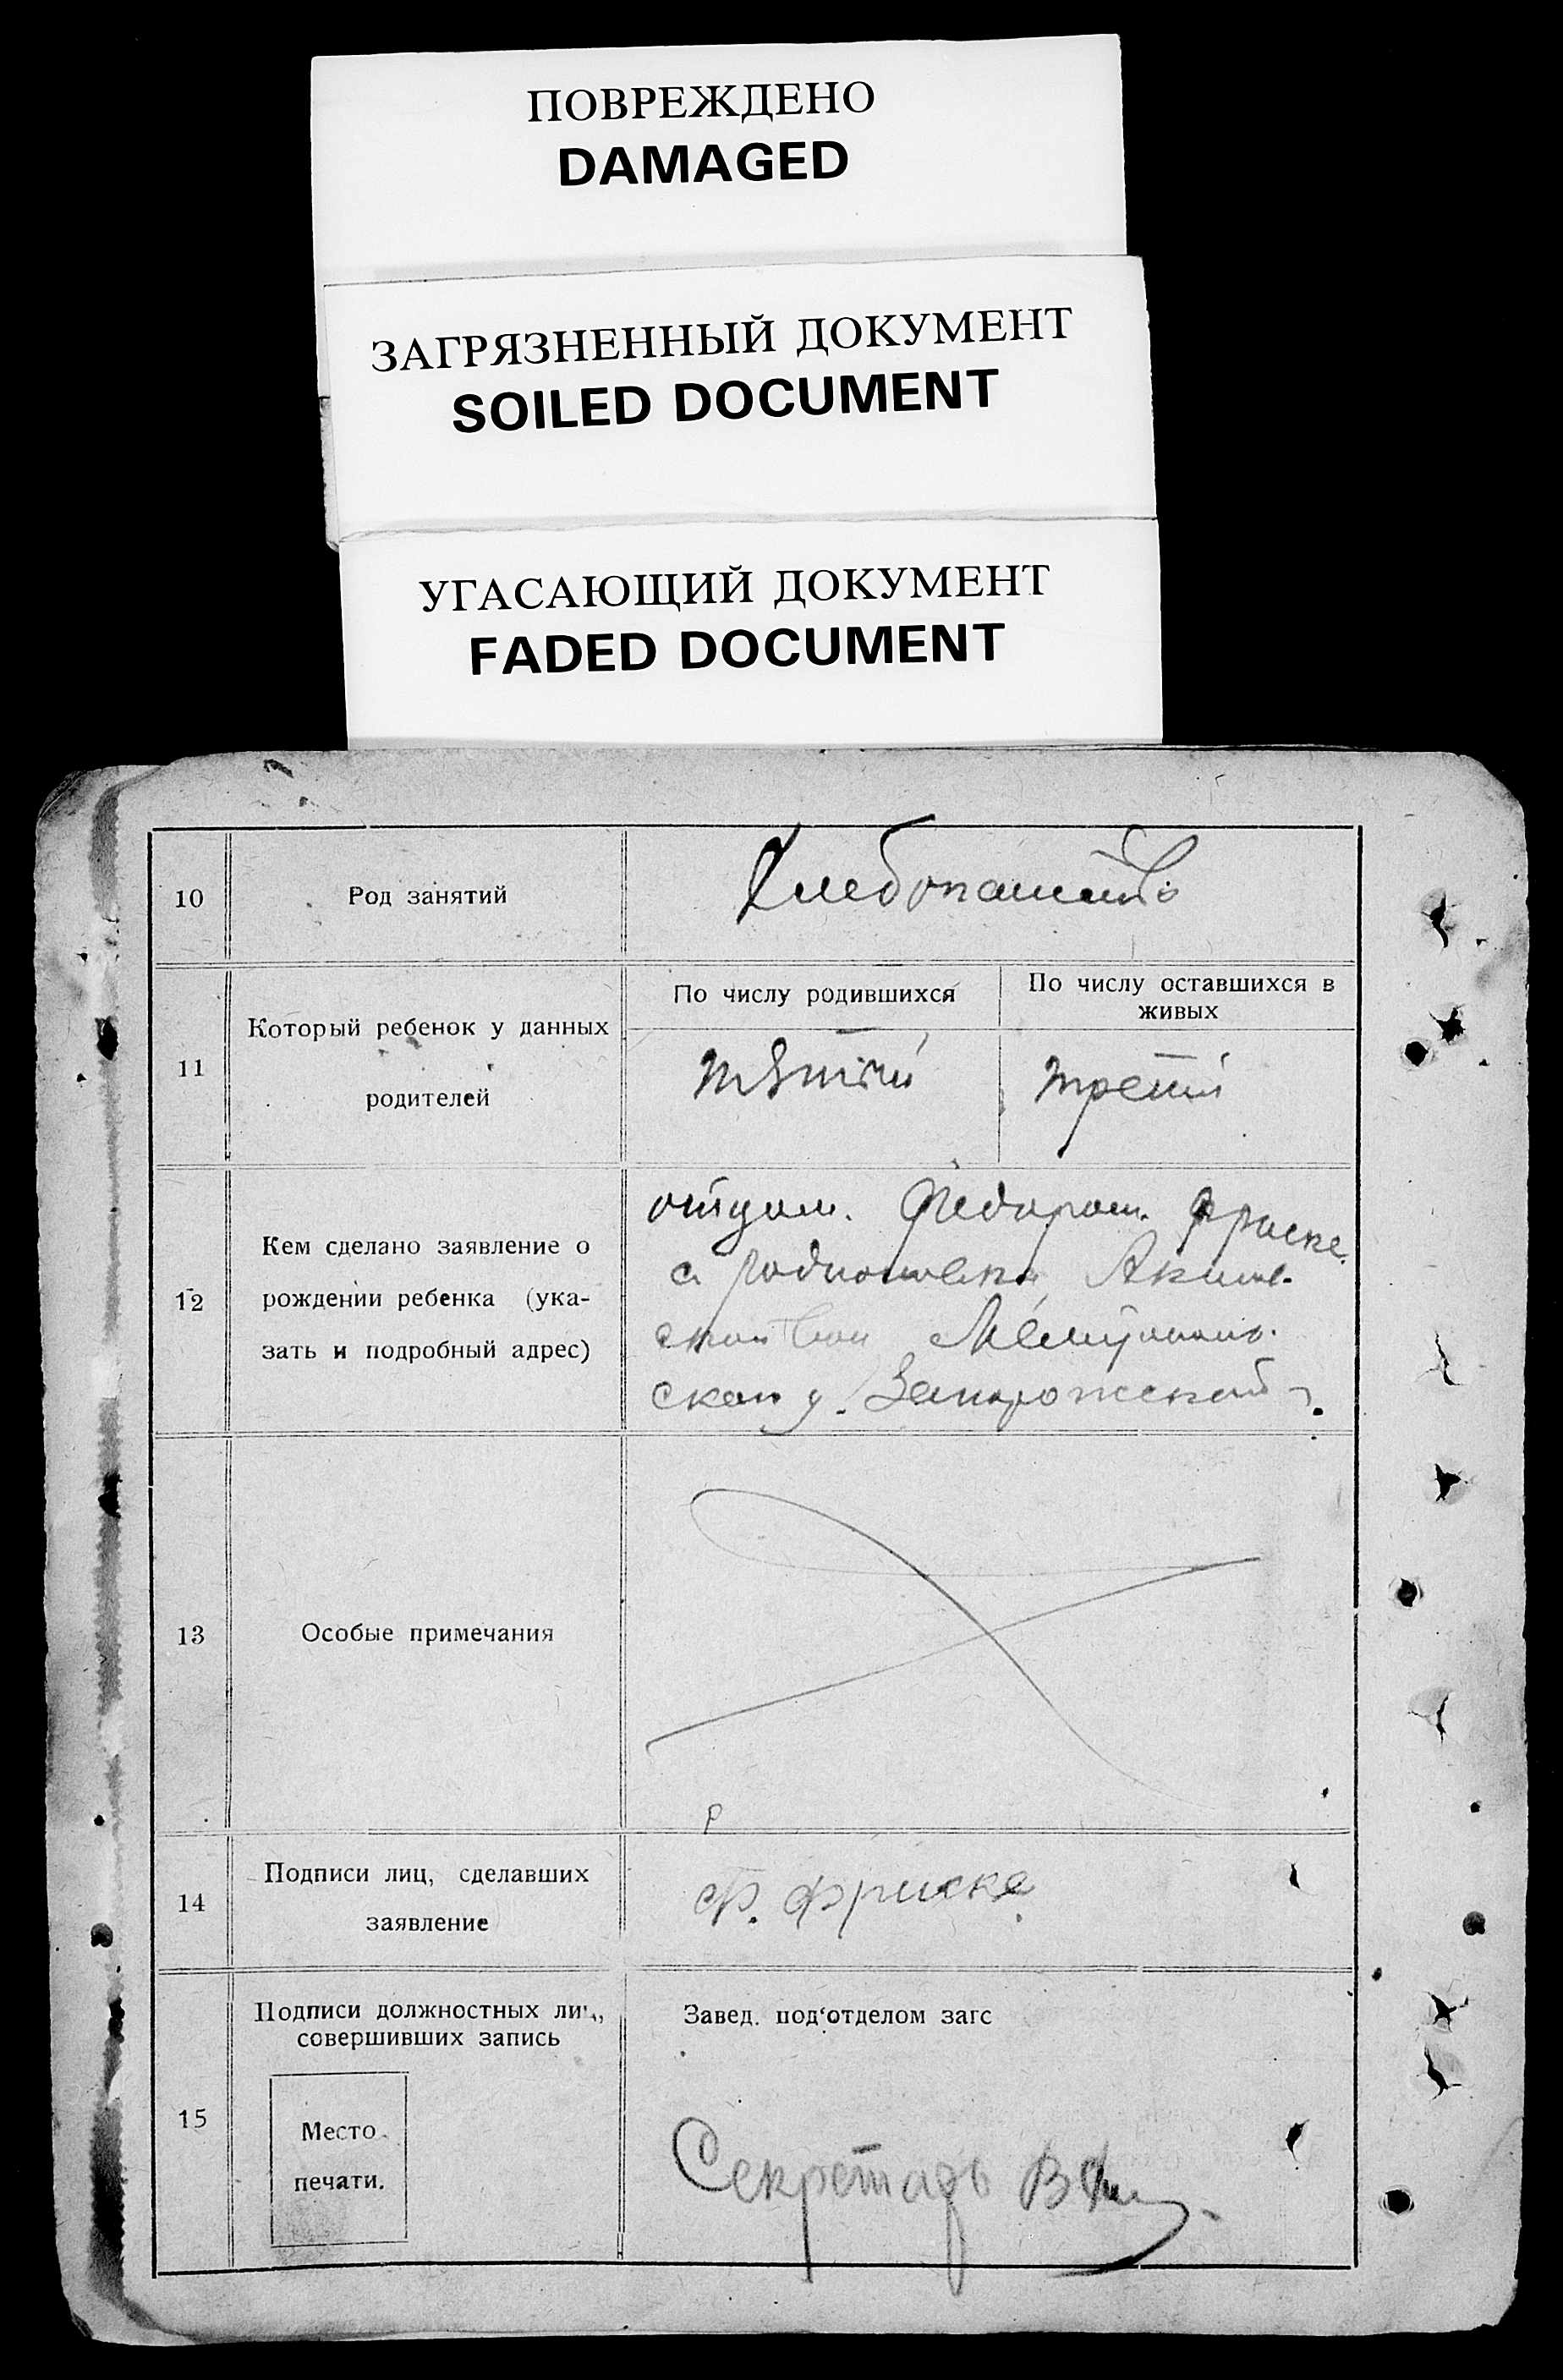 ПОВРЕЖДЕНО
DAMAGED
ЗАГРЯЗНЕННЫЙ ДОКУМЕНТ
SOILED DOCUMENT
УГАСАЮЩИЙ ДОКУМЕНТ
FADED DOCUMENT
10
Род занятий
Хлебопашество
11
Который ребенок у данных
родителей
По числу родившихся
По числу оставшихся в
живых
пятый
третий
12
Кем сделано заявление о
рождении ребенка (ука-
зать и подробный адрес)
отцом. Федором. Фриске.
с Родионовка Акимов-
ской вол Мелитополь-
ской у. Запорожской г.
13
Особые примечания
14
Подписи лиц, сделавших
заявление
Ф. Фриске
15
Подписи должностных лиц,
совершивших запись
Место
печати.
Завед. под‘отделом загс
Секретарь